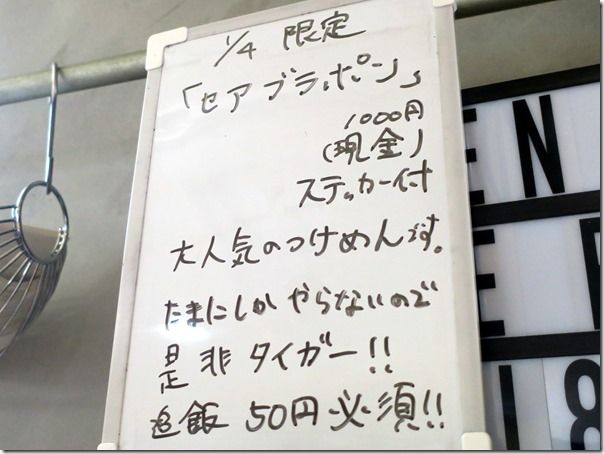 1/4 限定
「セアブラ、ポン」
1000円
(現金)
ステッカー付
大人気のつけめんです。
たまにしかやらないので
是非タイガー!!
追飯 50円必須!!
EN
E
18